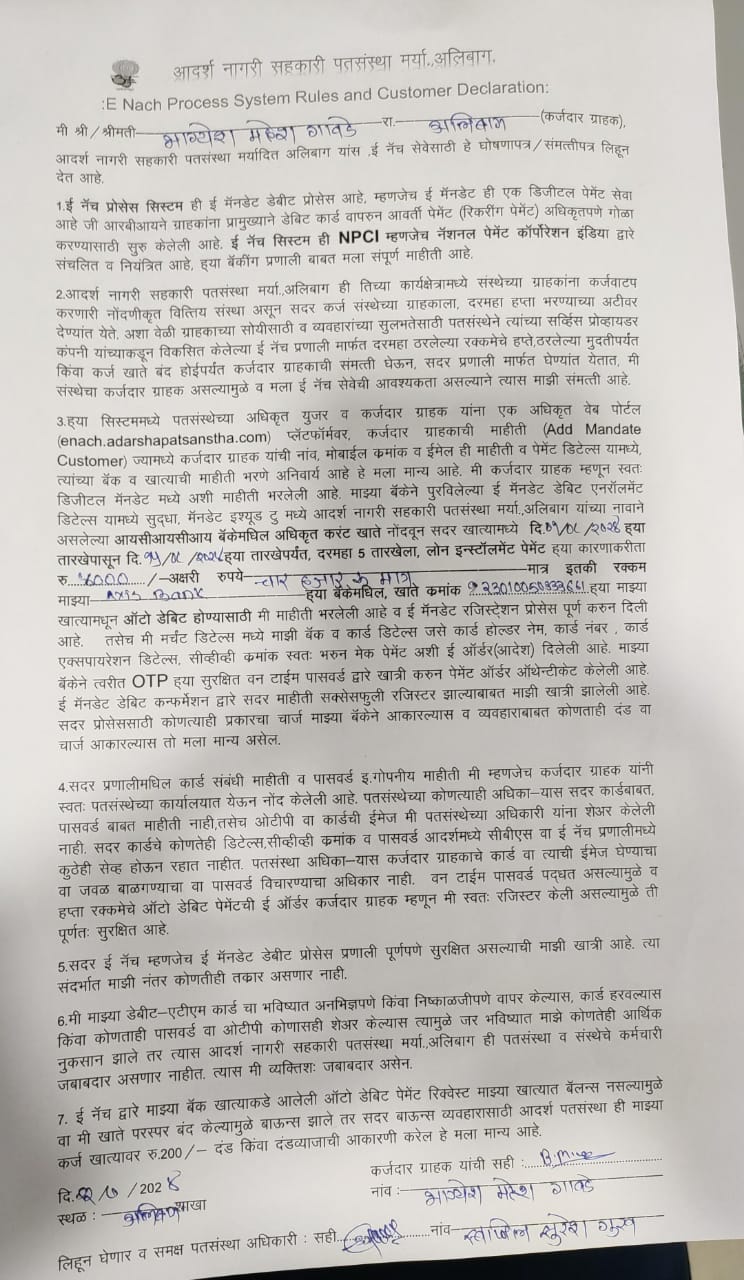 आदर्श नागरी सहकारी पतसंस्था मर्या.,अलिबाग.
:E Nach Process System Rules and Customer Declaration:
मी श्री/श्रीमती भाग्येश महेश गावडे रा. अलिबाग (कर्जदार ग्राहक),
आदर्श नागरी सहकारी पतसंस्था मर्यादित अलिबाग यांस .ई नॅच सेवेसाठी हे घोषणापत्र/संमत्तीपत्र लिहून
देत आहे.
1.ई नॅच प्रोसेस सिस्टम ही ई मॅनडेट डेबीट प्रोसेस आहे, म्हणजेच ई मॅनडेट ही एक डिजीटल पेमेंट सेवा
आहे जी आरबीआयने ग्राहकांना प्रामुख्याने डेबिट कार्ड वापरुन आवर्ती पेमेंट (रिकरींग पेमेंट) अधिकृतपणे गोळा
करण्यासाठी सुरु केलेली आहे. ई नॅच सिस्टम ही NPCI म्हणजेच नॅशनल पेमेंट कॉर्पोरेशन इंडिया द्वारे
संचलित व नियंत्रित आहे, ह्या बॅकींग प्रणाली बाबत मला संपूर्ण माहीती आहे.
2.आदर्श नागरी सहकारी पतसंस्था मर्या.अलिबाग ही तिच्या कार्यक्षेत्रामध्ये संस्थेच्या ग्राहकांना कर्जवाटप
करणारी नोंदणीकृत वित्तिय संस्था असून सदर कर्ज संस्थेच्या ग्राहकाला, दरमहा हप्ता भरण्याच्या अटीवर
देण्यांत येते. अशा वेळी ग्राहकाच्या सोयीसाठी व व्यवहारांच्या सुलभतेसाठी पतसंस्थेने त्यांच्या सर्व्हिस प्रोव्हायडर
कंपनी यांच्याकडून विकसित केलेल्या ई नॅच प्रणाली मार्फत दरमहा ठरलेल्या रक्कमेचे हप्ते,ठरलेल्या मुदतीपर्यत
किंवा कर्ज खाते बंद होईपर्यत कर्जदार ग्राहकाची संमत्ती घेऊन, सदर प्रणाली मार्फत घेण्यांत येतात, मी
संस्थेचा कर्जदार ग्राहक असल्यामुळे व मला ई नॅच सेवेची आवश्यकता असल्याने त्यास माझी संमत्ती आहे.
3.ह्या सिस्टममध्ये पतसंस्थेच्या अधिकृत युजर व कर्जदार ग्राहक यांना एक अधिकृत वेब पोर्टल
(enach.adarshapatsanstha.com) प्लॅटफॉर्मवर, कर्जदार ग्राहकाची माहीती (Add Mandate
Customer) ज्यामध्ये कर्जदार ग्राहक यांची नांव, मोबाईल क्रमांक व ईमेल ही माहीती व पेमेंट डिटेल्स यामध्ये,
त्यांच्या बॅक व खात्याची माहीती भरणे अनिवार्य आहे हे मला मान्य आहे. मी कर्जदार ग्राहक म्हणून स्वतः
डिजीटल मॅनडेट मध्ये अशी माहीती भरलेली आहे. माझ्या बॅकेने पुरविलेल्या ई मॅनडेट डेबिट एनरॉलमेंट
डिटेल्स यामध्ये सुद्धा, मॅनडेट इश्यूड टु मध्ये आदर्श नागरी सहकारी पतसंस्था मर्या.,अलिबाग यांच्या नावाने
असलेल्या आयसीआयसीआय बॅकेमधिल अधिकृत करंट खाते नोंदवून सदर खात्यामध्ये दि. ह्या
तारखेपासून दि. ह्या तारखेपर्यंत, दरमहा 5 तारखेला, लोन इन्स्टॉलमेंट पेमेंट ह्या कारणाकरीता
रु. 4000 /-अक्षरी रुपये चार हजार रू मात्र मात्र इतकी रक्कम
माझ्या Axis Bank ह्या बॅकेमधिल, खाते क्रमांक ह्या माझ्या
खात्यामधून ऑटो डेबिट होण्यासाठी मी माहीती भरलेली आहे व ई मॅनडेट रजिस्ट्रेशन प्रोसेस पूर्ण करुन दिली
आहे. तसेच मी मर्चंट डिटेल्स मध्ये माझी बॅक व कार्ड डिटेल्स जसे कार्ड होल्डर नेम, कार्ड नंबर , कार्ड
एक्सपायरेशन डिटेल्स, सीव्हीव्ही क्रमांक स्वतः भरुन मेक पेमेंट अशी ई ऑर्डर(आदेश) दिलेली आहे. माझ्या
बॅकेने त्वरीत OTP ह्या सुरक्षित वन टाईम पासवर्ड द्वारे खात्री करुन पेमेंट ऑर्डर ऑथेन्टीकेट केलेली आहे.
ई मॅनडेट डेबिट कन्फर्मेशन द्वारे सदर माहीती सक्सेसफुली रजिस्टर झाल्याबाबत माझी खात्री झालेली आहे.
सदर प्रोसेससाठी कोणत्याही प्रकारचा चार्ज माझ्या बॅकेने आकारल्यास व व्यवहाराबाबत कोणताही दंड वा
चार्ज आकारल्यास तो मला मान्य असेल.
4.सदर प्रणालीमधिल कार्ड संबंधी माहीती व पासवर्ड इ.गोपनीय माहीती मी म्हणजेच कर्जदार ग्राहक यांनी
स्वतः पतसंस्थेच्या कार्यालयात येऊन नोंद केलेली आहे. पतसंस्थेच्या कोणत्याही अधिका-यास सदर कार्डबाबत,
पासवर्ड बाबत माहीती नाही,तसेच ओटीपी वा कार्डची ईमेज मी पतसंस्थेच्या अधिकारी यांना शेअर केलेली
नाही. सदर कार्डचे कोणतेही डिटेल्स,सीव्हीव्ही क्रमांक व पासवर्ड आदर्शमध्ये सीबीएस वा ई नॅच प्रणालीमध्ये
कुठेही सेव्ह होऊन रहात नाहीत. पतसंस्था अधिका-यास कर्जदार ग्राहकाचे कार्ड वा त्याची ईमेज घेण्याचा
वा जवळ बाळगण्याचा वा पासवर्ड विचारण्याचा अधिकार नाही. वन टाईम पासवर्ड पद्धत असल्यामुळे व
हप्ता रक्कमेचे ऑटो डेबिट पेमेंटची ई ऑर्डर कर्जदार ग्राहक म्हणून मी स्वतः रजिस्टर केली असल्यामुळे ती
पूर्णतः सुरक्षित आहे.
5.सदर ई नॅच म्हणजेच ई मॅनडेट डेबीट प्रोसेस प्रणाली पूर्णपणे सुरक्षित असल्याची माझी खात्री आहे. त्या
संदर्भात माझी नंतर कोणतीही तक्रार असणार नाही.
6.मी माझ्या डेबीट-एटीएम कार्ड चा भविष्यात अनभिज्ञपणे किंवा निष्काळजीपणे वापर केल्यास, कार्ड हरवल्यास
किंवा कोणताही पासवर्ड वा ओटीपी कोणासही शेअर केल्यास त्यामुळे जर भविष्यात माझे कोणतेही आर्थिक
नुकसान झाले तर त्यास आदर्श नागरी सहकारी पतसंस्था मर्या.,अलिबाग ही पतसंस्था व संस्थेचे कर्मचारी
जबाबदार असणार नाहीत. त्यास मी व्यक्तिशः जबाबदार असेन.
7. ई नॅच द्वारे माझ्या बॅक खात्याकडे आलेली ऑटो डेबिट पेमेंट रिक्वेस्ट माझ्या खात्यात बॅलन्स नसल्यामुळे
वा मी खाते परस्पर बंद केल्यामुळे बाऊन्स झाले तर सदर बाऊन्स व्यवहारासाठी आदर्श पतसंस्था ही माझ्या
कर्ज खात्यावर रु.200/- दंड किंवा दंडव्याजाची आकारणी करेल हे मला मान्य आहे.
कर्जदार ग्राहक यांची सही :
दि. /202
नांव : भाग्येश महेश गावडे
स्थळ : अलिबाग शाखा
लिहून घेणार व समक्ष पतसंस्था अधिकारी : सही नांव स्वाप्निल सुरेश गुरव